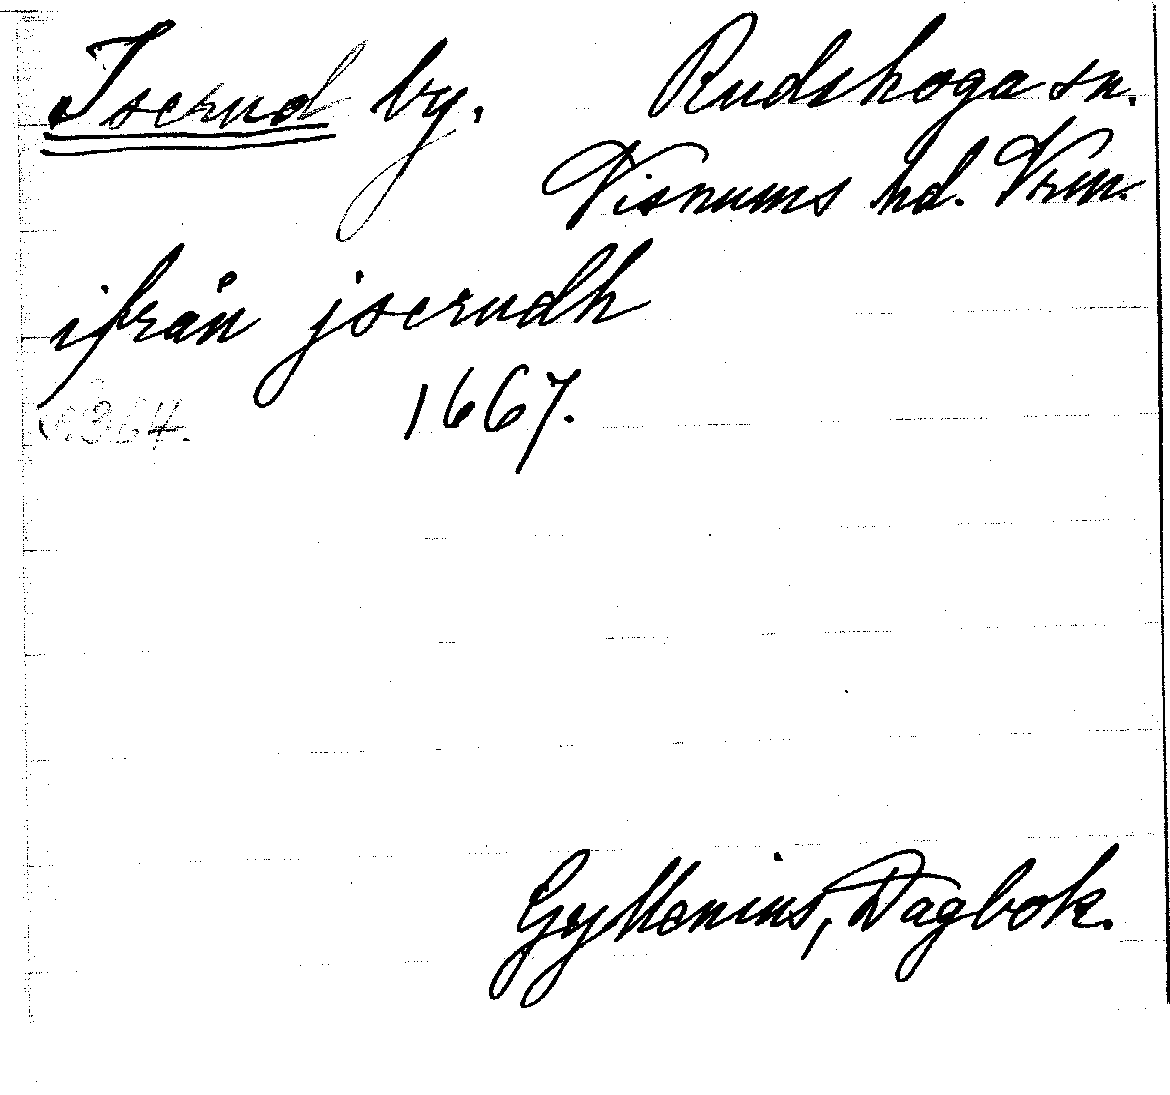 Iserud by. Rudskoga sn.
Visnums hd. Vrm.
ifrån jserudh
s. 364. 1667.
Gyllenius, Dagbok.